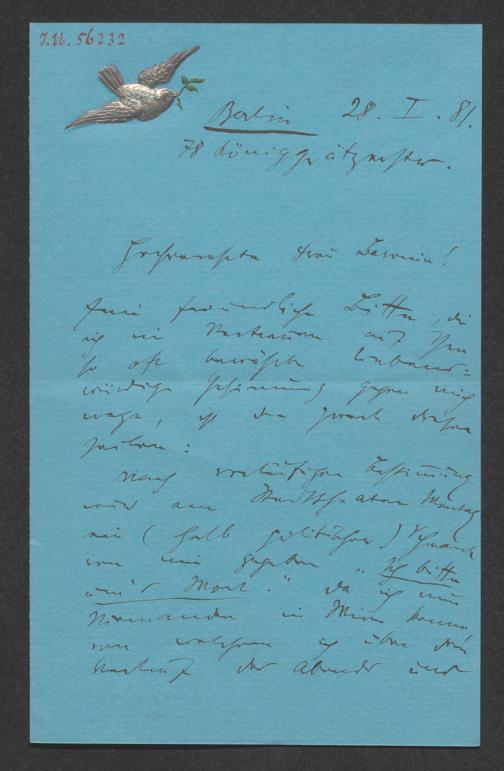 J.N. 56232
Berlin 28. I. 81.
78 Königgrätzerstr.
Hochverehrte Frau Baronin!
Eine freundliche Bitte, die
ich im Vertrauen auf Ihre
so oft bewährte liebens-
würdige Gesinnung gegen mich
wage, ist der Zweck dieser
Zeilen:
Nach vorläufiger Bestimmung
wird am Stadttheater Montag
ein (halb politischer) Schwank
von mir gegeben "Ich bitte
um's Wort." Da ich nun
Niemanden in Wien kenne
von welchem ich über den
Verlauf des Abends und